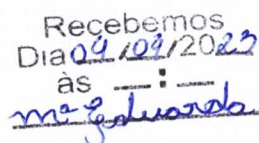 Recebemos
Dia 04/04/2023
às __:__
Mª Eduarda